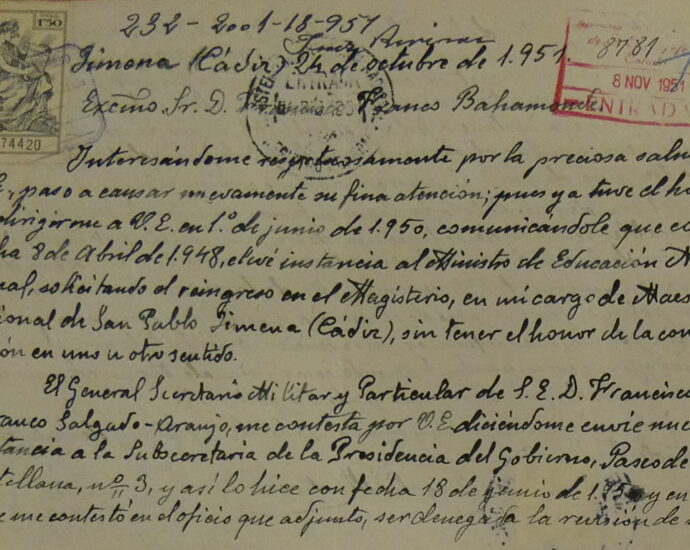 232-2001-18-951
1'50
Jimena (Cádiz) 24 de octubre de 1.951.
8781
8 NOV 1951
ENTRADA
74420
ENTRADA
Excmo Sr. D. Franco Bahamonde
Interesándome respetuosamente por la preciosa salu
E., paso a causar nuevamente su fina atención; pues ya tuve el ho
dirigirme a V.E. en 1º de junio de 1.950, comunicándole que co
ha 8 de Abril de 1.948, elevé instancia al Ministro de Educación N
nal, solicitando el reingreso en el Magisterio, en mi cargo de Maes
cional de San Pablo Jimena (Cádiz), sin tener el honor de la con
ón en uno u otro sentido.
El General Secretario Militar y Particular de S.E. D. Francisco
ranco Salgado-Araujo, me contesta por V.E. diciéndome envíe nue
tancia a la Subsecretaria de la Presidencia del Gobierno, Paseo de
tellana, nº 3, y así lo hice con fecha 18 de junio de 1.950 y en
e me contestó en el oficio que adjunto, ser denegada la revisión de